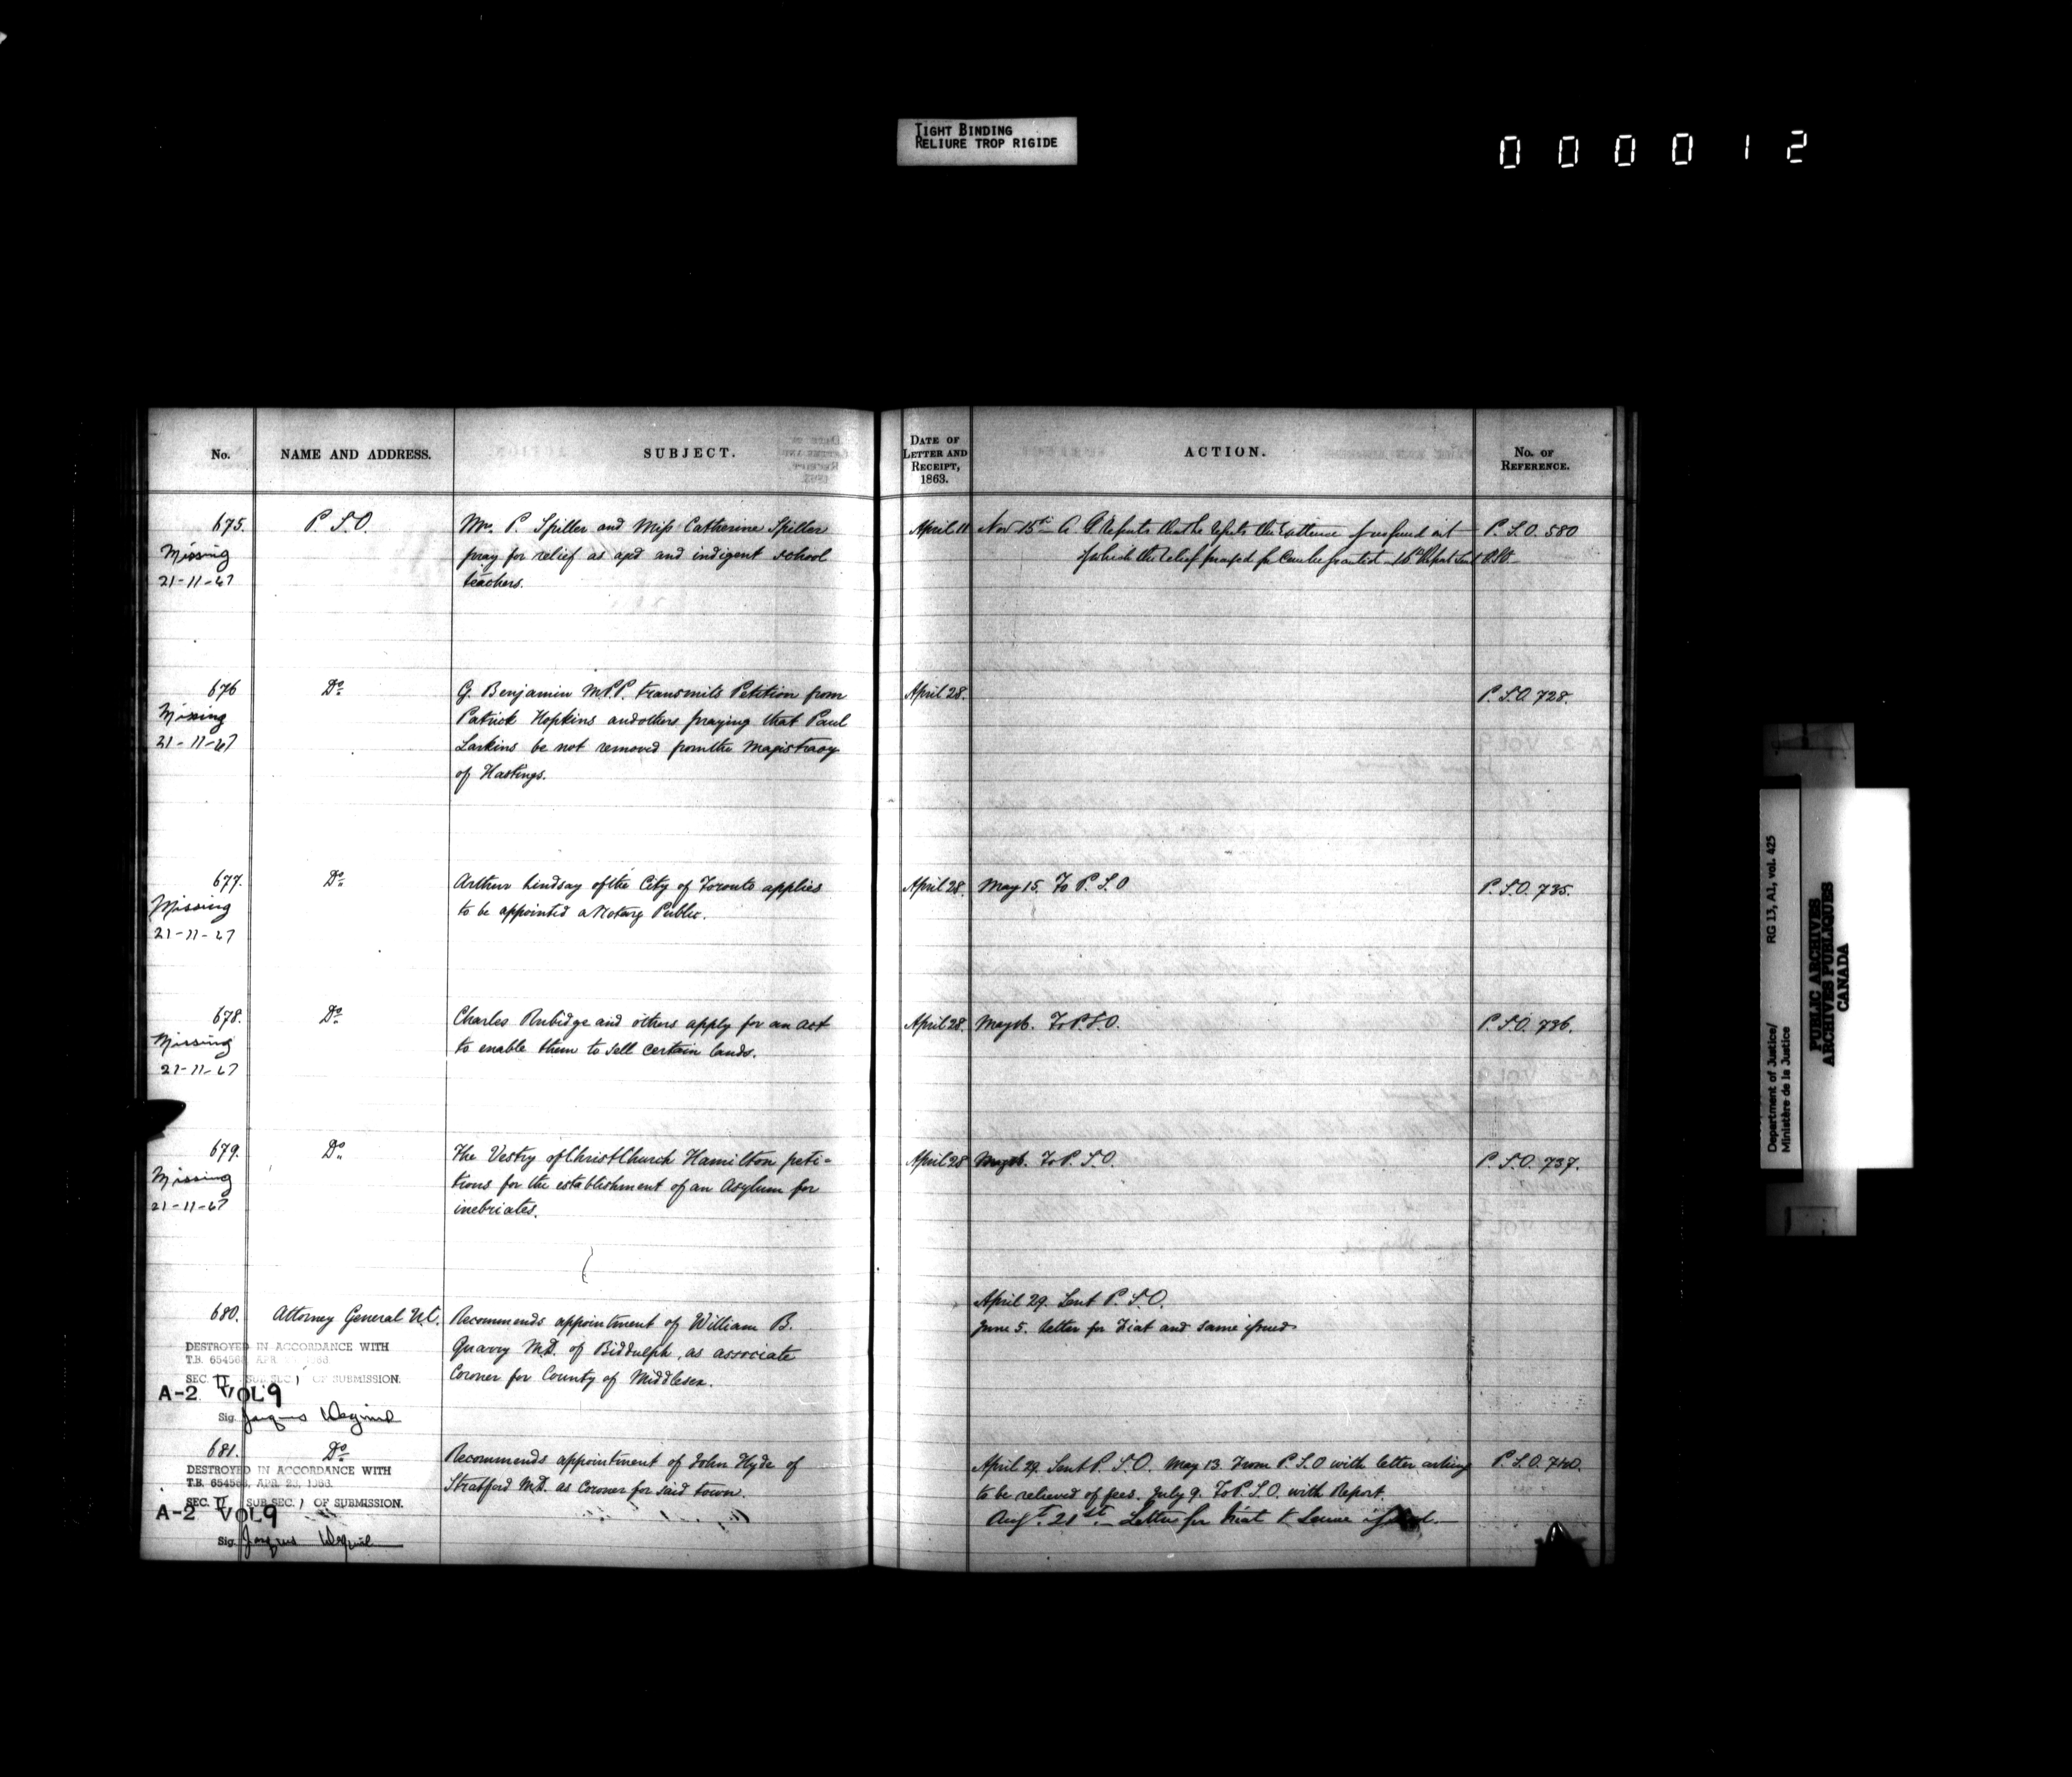 TIGHT BINDING
RELIURE TROP RIGIDE
000012
No. NAME AND ADDRESS. SUBJECT. DATE OF LETTER AND RECEIPT, 1863. ACTION. No. OF REFERENCE.
675. P.S.O. Mr. P. Spiller and Miss Catherine Spiller April 11 Nov 15th A. G. Reports that he reports the existence of no fund out P.S.O. 580
Missing pray for relief as aged and indigent school of which the relief prayed for can be granted - 16th Report sent P.S.O.
21-11-67 teachers.
676 Do G. Benjamin M.P.P. transmits Petition from April 28. P.S.O. 728.
Missing Patrick Hopkins and others praying that Paul
21-11-67 Larkins be not removed from the Magistracy
of Hastings.
677. Do Arthur Lindsay of the City of Toronto applies April 28. May 15. To P.S.O P.S.O. 735.
Missing to be appointed a Notary Public.
21-11-67
678. Do Charles Rubidge and others apply for an act April 28. To P.S.O. P.S.O. 736.
Missing to enable them to sell certain lands.
21-11-67
679. Do The Vestry of Christ Church Hamilton peti- April 28 To P.S.O. P.S.O. 737.
Missing tions for the establishment of an Asylum for
21-11-67 inebriates.
April 29. Sent P.S.O.
680. Attorney General U.C. Recommends appointment of William B. June 5. Letter for Fiat and same issued
DESTROYED IN ACCORDANCE WITH Quarry M.D. of Biddulph, as associate
T.B. 654568, APR.
SEC. II SUB SEC. 1 OF SUBMISSION. Coroner for County of Middlesex.
A-2 VOL 9
Sig. Jacques
681. Do Recommends appointment of John Hyde of April 29. Sent P.S.O. May 13. From P.S.O with letter asking P.S.O. 740.
DESTROYED IN ACCORDANCE WITH
T.B. 654568, APR. 23, 1963. Stratford M.D. as Coroner for said town. to be relieved of fees. July 9. To P.S.O. with Report.
SEC. II SUB SEC. 1 OF SUBMISSION.
A-2 VOL 9 Augt. 21st - Letter for Fiat & Same issued.
Sig. Jacques
Department of Justice/ RG 13, A1, vol. 425
Ministère de la Justice
PUBLIC ARCHIVES
ARCHIVES PUBLIQUES
CANADA